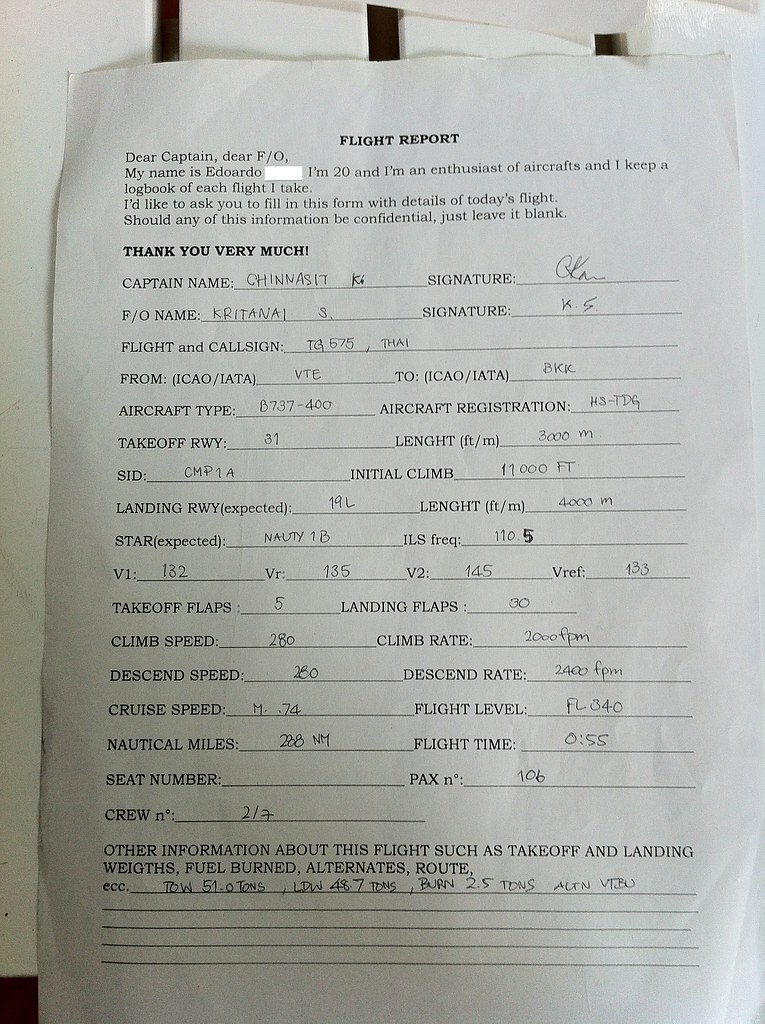 FLIGHT REPORT
Dear Captain, dear F/O,
My name is Edoardo I'm 20 and I'm an enthusiast of aircrafts and I keep a
logbook of each flight I take.
I'd like to ask you to fill in this form with details of today's flight.
Should any of this information be confidential, just leave it blank.
THANK YOU VERY MUCH!
CAPTAIN NAME: CHINNASIT K. SIGNATURE:
F/O NAME: KRITANAI S. SIGNATURE: K.S.
FLIGHT and CALLSIGN: TG 575 , THAI
FROM: (ICAO/IATA) VTE TO: (ICAO/IATA) BKK
AIRCRAFT TYPE: B737-400 AIRCRAFT REGISTRATION: HS-TDG
TAKEOFF RWY: 31 LENGHT (ft/m) 3000 m
SID: CMP1A INITIAL CLIMB 11000 FT
LANDING RWY(expected): 19L LENGHT (ft/m) 4000 m
STAR(expected): NAUTY 1B ILS freq: 110.5
V1: 132 Vr: 135 V2: 145 Vref: 133
TAKEOFF FLAPS : 5 LANDING FLAPS : 30
CLIMB SPEED: 280 CLIMB RATE: 2000fpm
DESCEND SPEED: 280 DESCEND RATE: 2400 fpm
CRUISE SPEED: M. .74 FLIGHT LEVEL: FL 340
NAUTICAL MILES: 288 NM FLIGHT TIME: 0:55
SEAT NUMBER: PAX n°: 106
CREW n°: 2/7
OTHER INFORMATION ABOUT THIS FLIGHT SUCH AS TAKEOFF AND LANDING
WEIGTHS, FUEL BURNED, ALTERNATES, ROUTE,
ecc. TOW 51.0 TONS , LDW 48.7 TONS , BURN 2.5 TONS ALTN VTBU